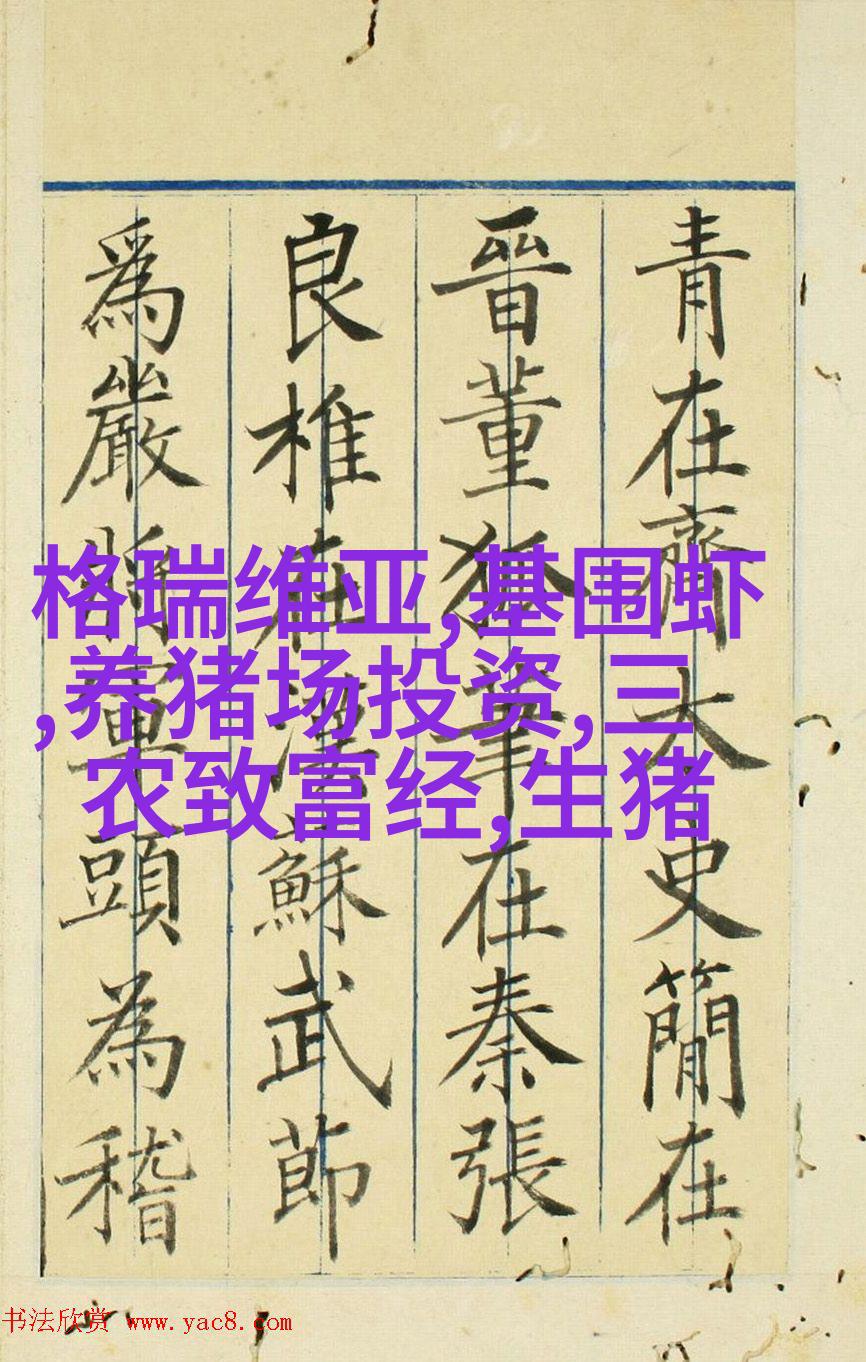 青在齊太史簡在
晉董狐筆在秦張
良椎在漢蘇武節
為嚴將軍頭為嵇
格瑞维亚,基围虾
,养猪场投资,三
农致富经,生猪
书法欣赏 www.yac8.com